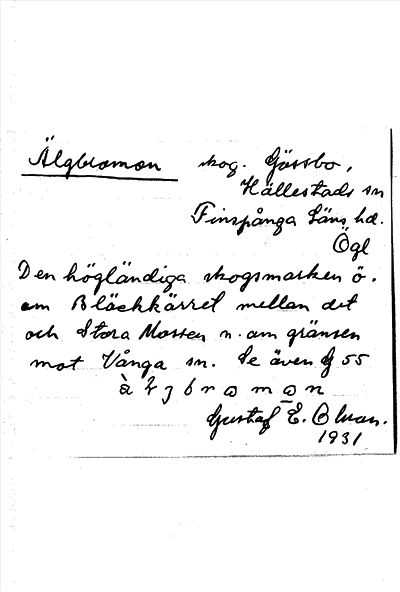 Älgbromon skog. Gössbo,
Hällestads sn
Finspånga Läns hd.
Ögl
Den högländiga skogsmarken ö.
om Bläckkärret mellan det
och Stora Mossen n. om gränsen
mot Vånga sn. Se även G 55
Gustaf E. Bluan.
1931